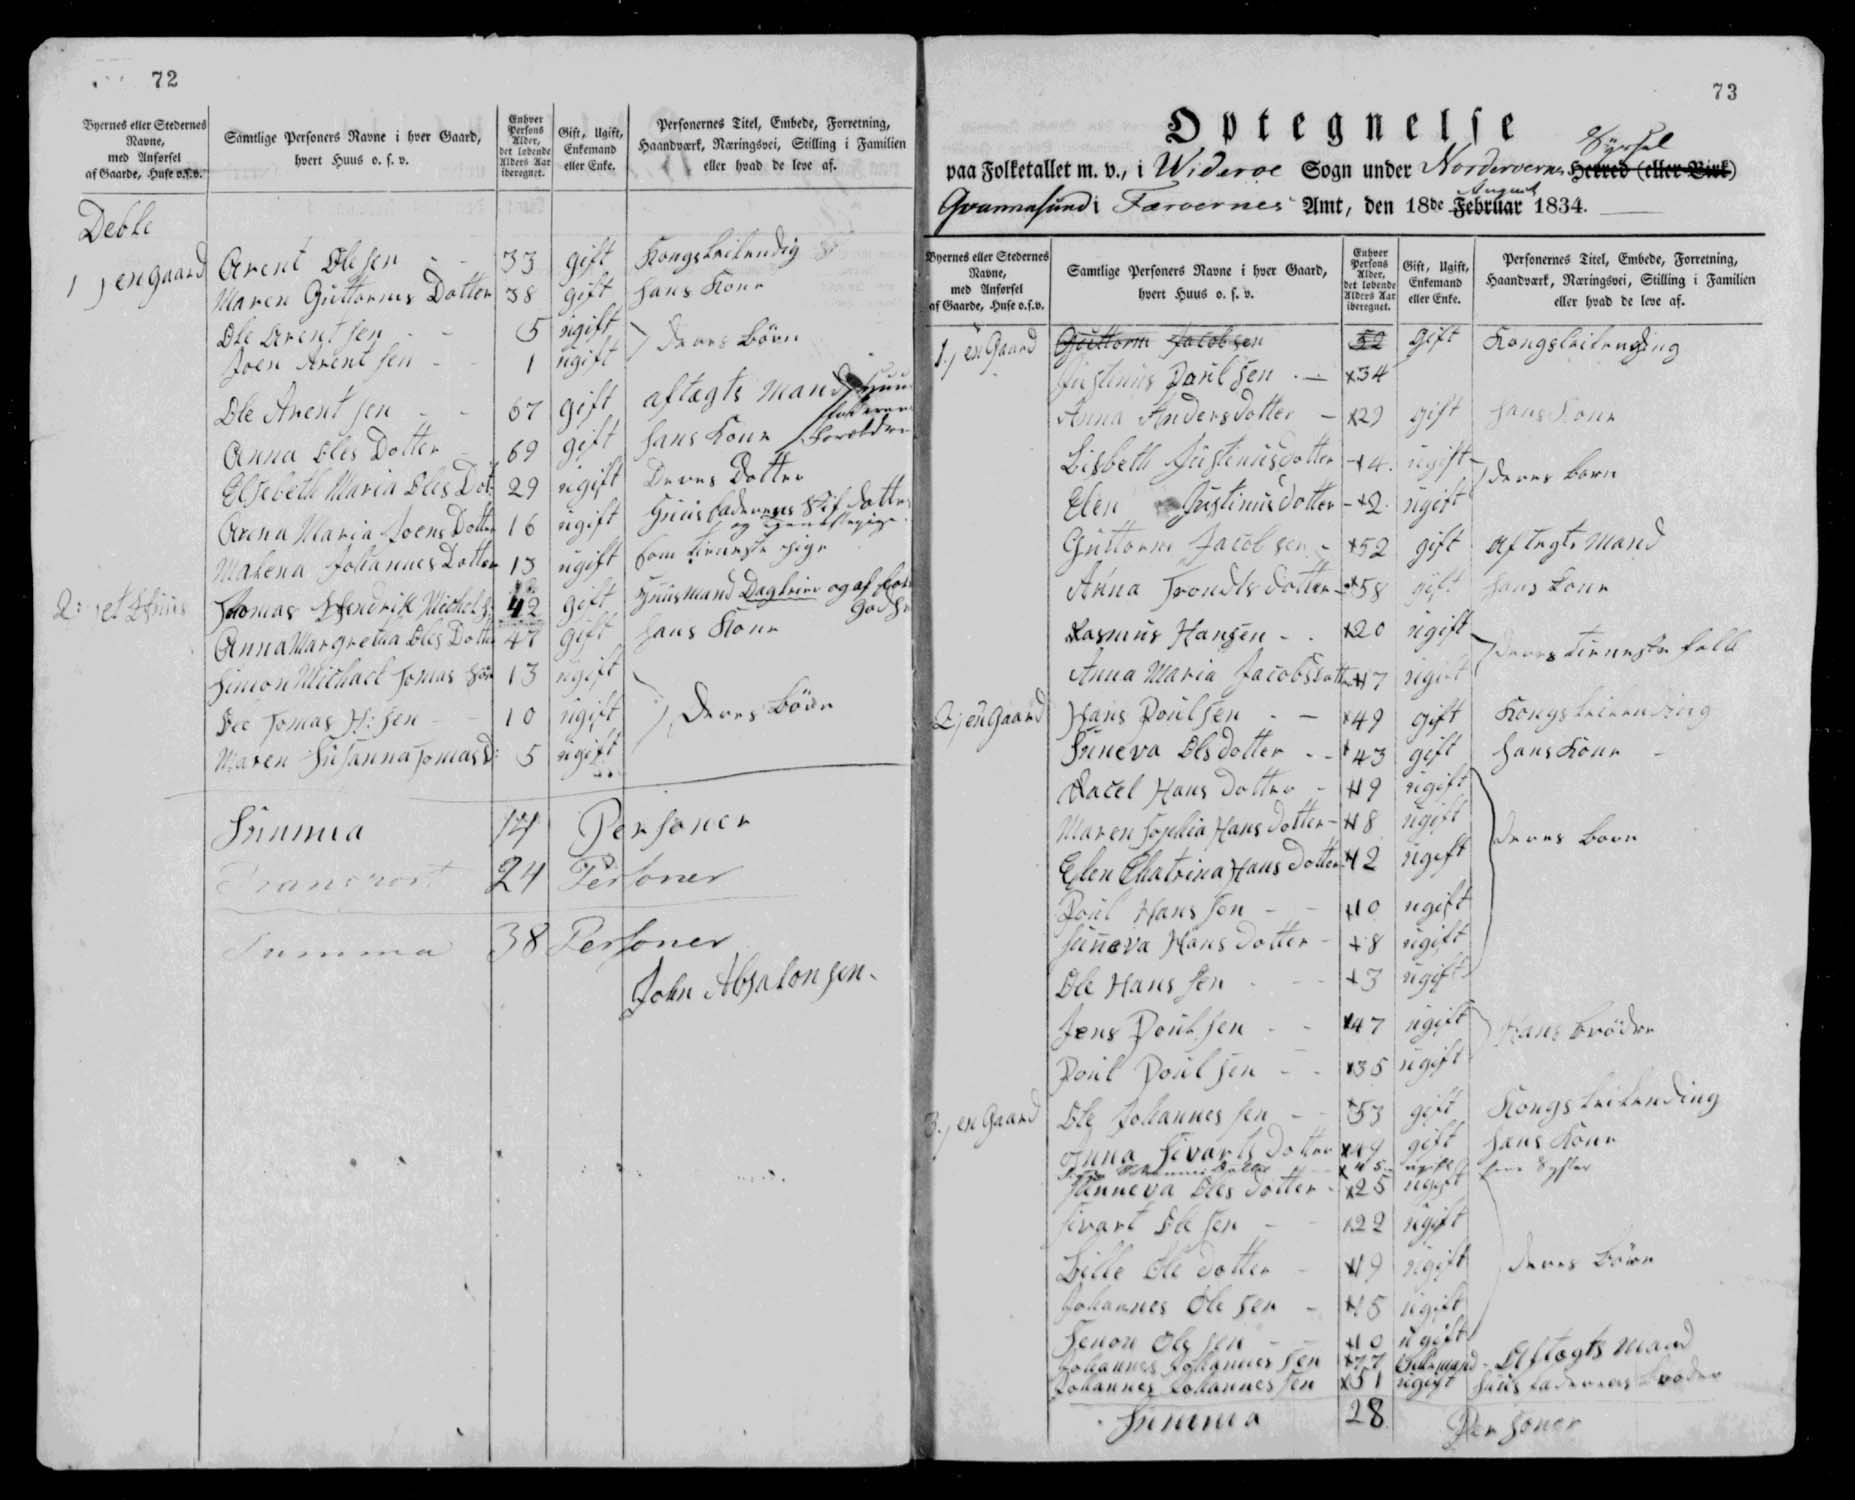 72
Byernes eller Stedernes Navne, med Anførsel af Gaarde, Huse o.s.v.
Samtlige Personers Navne i hver Gaard, hvert Huus o. s. v.
Enhver Persons Alder, det løbende Alders Aar iberegnet.
Gift, Ugift, Enkemand eller Enke.
Personernes Titel, Embede, Forretning, Haandværk, Næringsvei, Stilling i Familien eller hvad de leve af.
Deble
1) en gaard Arent Olesen 33 gift Kongsleilendig
Maren Guttorms Dotter 38 gift hans Kone
Ole Arentsen 5 ugift deres børn
Joen Arentsen 1 ugift
Ole Arentsen 67 gift aftægts Mand
Anna Oles Dotter 69 gift hans Kone
Elsebeth Maria Oles Dot: 29 ugift Deres Dotter
Anna Maria Joens Dotter 16 ugift Huusfaderens Stif dotter
Malena Johannes Dotter 13 ugift som tieneste pige
2: et Huus Thomas Hendrik Michels: 42 gift Huusmand
Anna Margretha Oles Dotter 47 gift hans Kone
Simon Michael Tomas Søn 13 ugift
Ole Tomas H:sen 10 ugift Deres børn
Maren Susanna Tomas D: 5 ugift
Summa 14 Personer
Transport 24 Personer
Summa 38 Personer
John Absalonsen
73
Optegnelse
paa Folketallet m. v., i Wideroe Sogn under Norderoernes Hered (eller Birk) Syssel
Qvannasund i Færoernes Amt, den 18de Februar August 1834.
Byernes eller Stedernes Navne, med Anførsel af Gaarde, Huse o.s.v.
Samtlige Personers Navne i hver Gaard, hvert Huus o. s. v.
Enhver Persons Alder, det løbende Alders Aar iberegnet.
Gift, Ugift, Enkemand eller Enke.
Personernes Titel, Embede, Forretning, Haandværk, Næringsvei, Stilling i Familien eller hvad de leve af.
1.) en Gaard Guttorm Jacobsen 52 gift Kongsleilending
Justinus Poulsen 34
Anna Andersdotter 29 gift hans Kone
Lisbeth Justinusdotter 4 ugift deres børn
Elen Justinusdotter 2 ugift
Guttorm Jacobsen 52 gift Aftegts Mand
Anna Trondesdotter 58 gift hans Kone
Rasmus Hansen 20 ugift deres tieneste folk
Anna Maria Jacobsdotter 17 ugift
2) en Gaard Hans Poulsen 49 gift Kongsleilending
Sunneva Olesdotter 43 gift hans Kone
Racel Hans Dotter 19 ugift
Maren Sophia Hans dotter 18 ugift deres børn
Elen Chatrina Hans Dotter 12 ugift
Poul Hanssen 10 ugift
Sunneva Hans Dotter 8 ugift
Ole Hanssen 3 ugift
Jens Poulsen 47 ugift Hans brødre
Poul Poulsen 35 ugift
3.) en Gaard Ole Johannessen 53 gift Kongsleilending
Anna Sivarts Dotter gift hans Kone
Johannes Dotter 45 ugift hans Syster
Sunneva Oles dotter 25 ugift
Sivart Olesen 22 ugift
Bille Ole dotter 19 ugift deres børn
Johannes Olesen 15 ugift
Semon Olesen 10 ugift
Johannes Johannessen 77 Enkemand Aftægts Mand
Johannes Johannessen 51 ugift huusfaderens broder
Summa 28 Personer